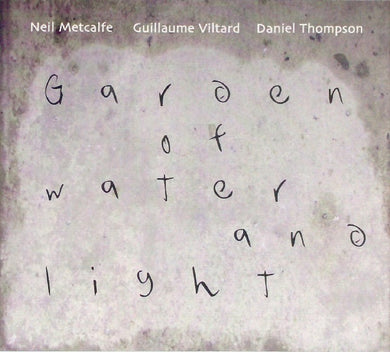 Neil Metcalfe Guillaume Viltard Daniel Thompson
Garden
of
water
and
light